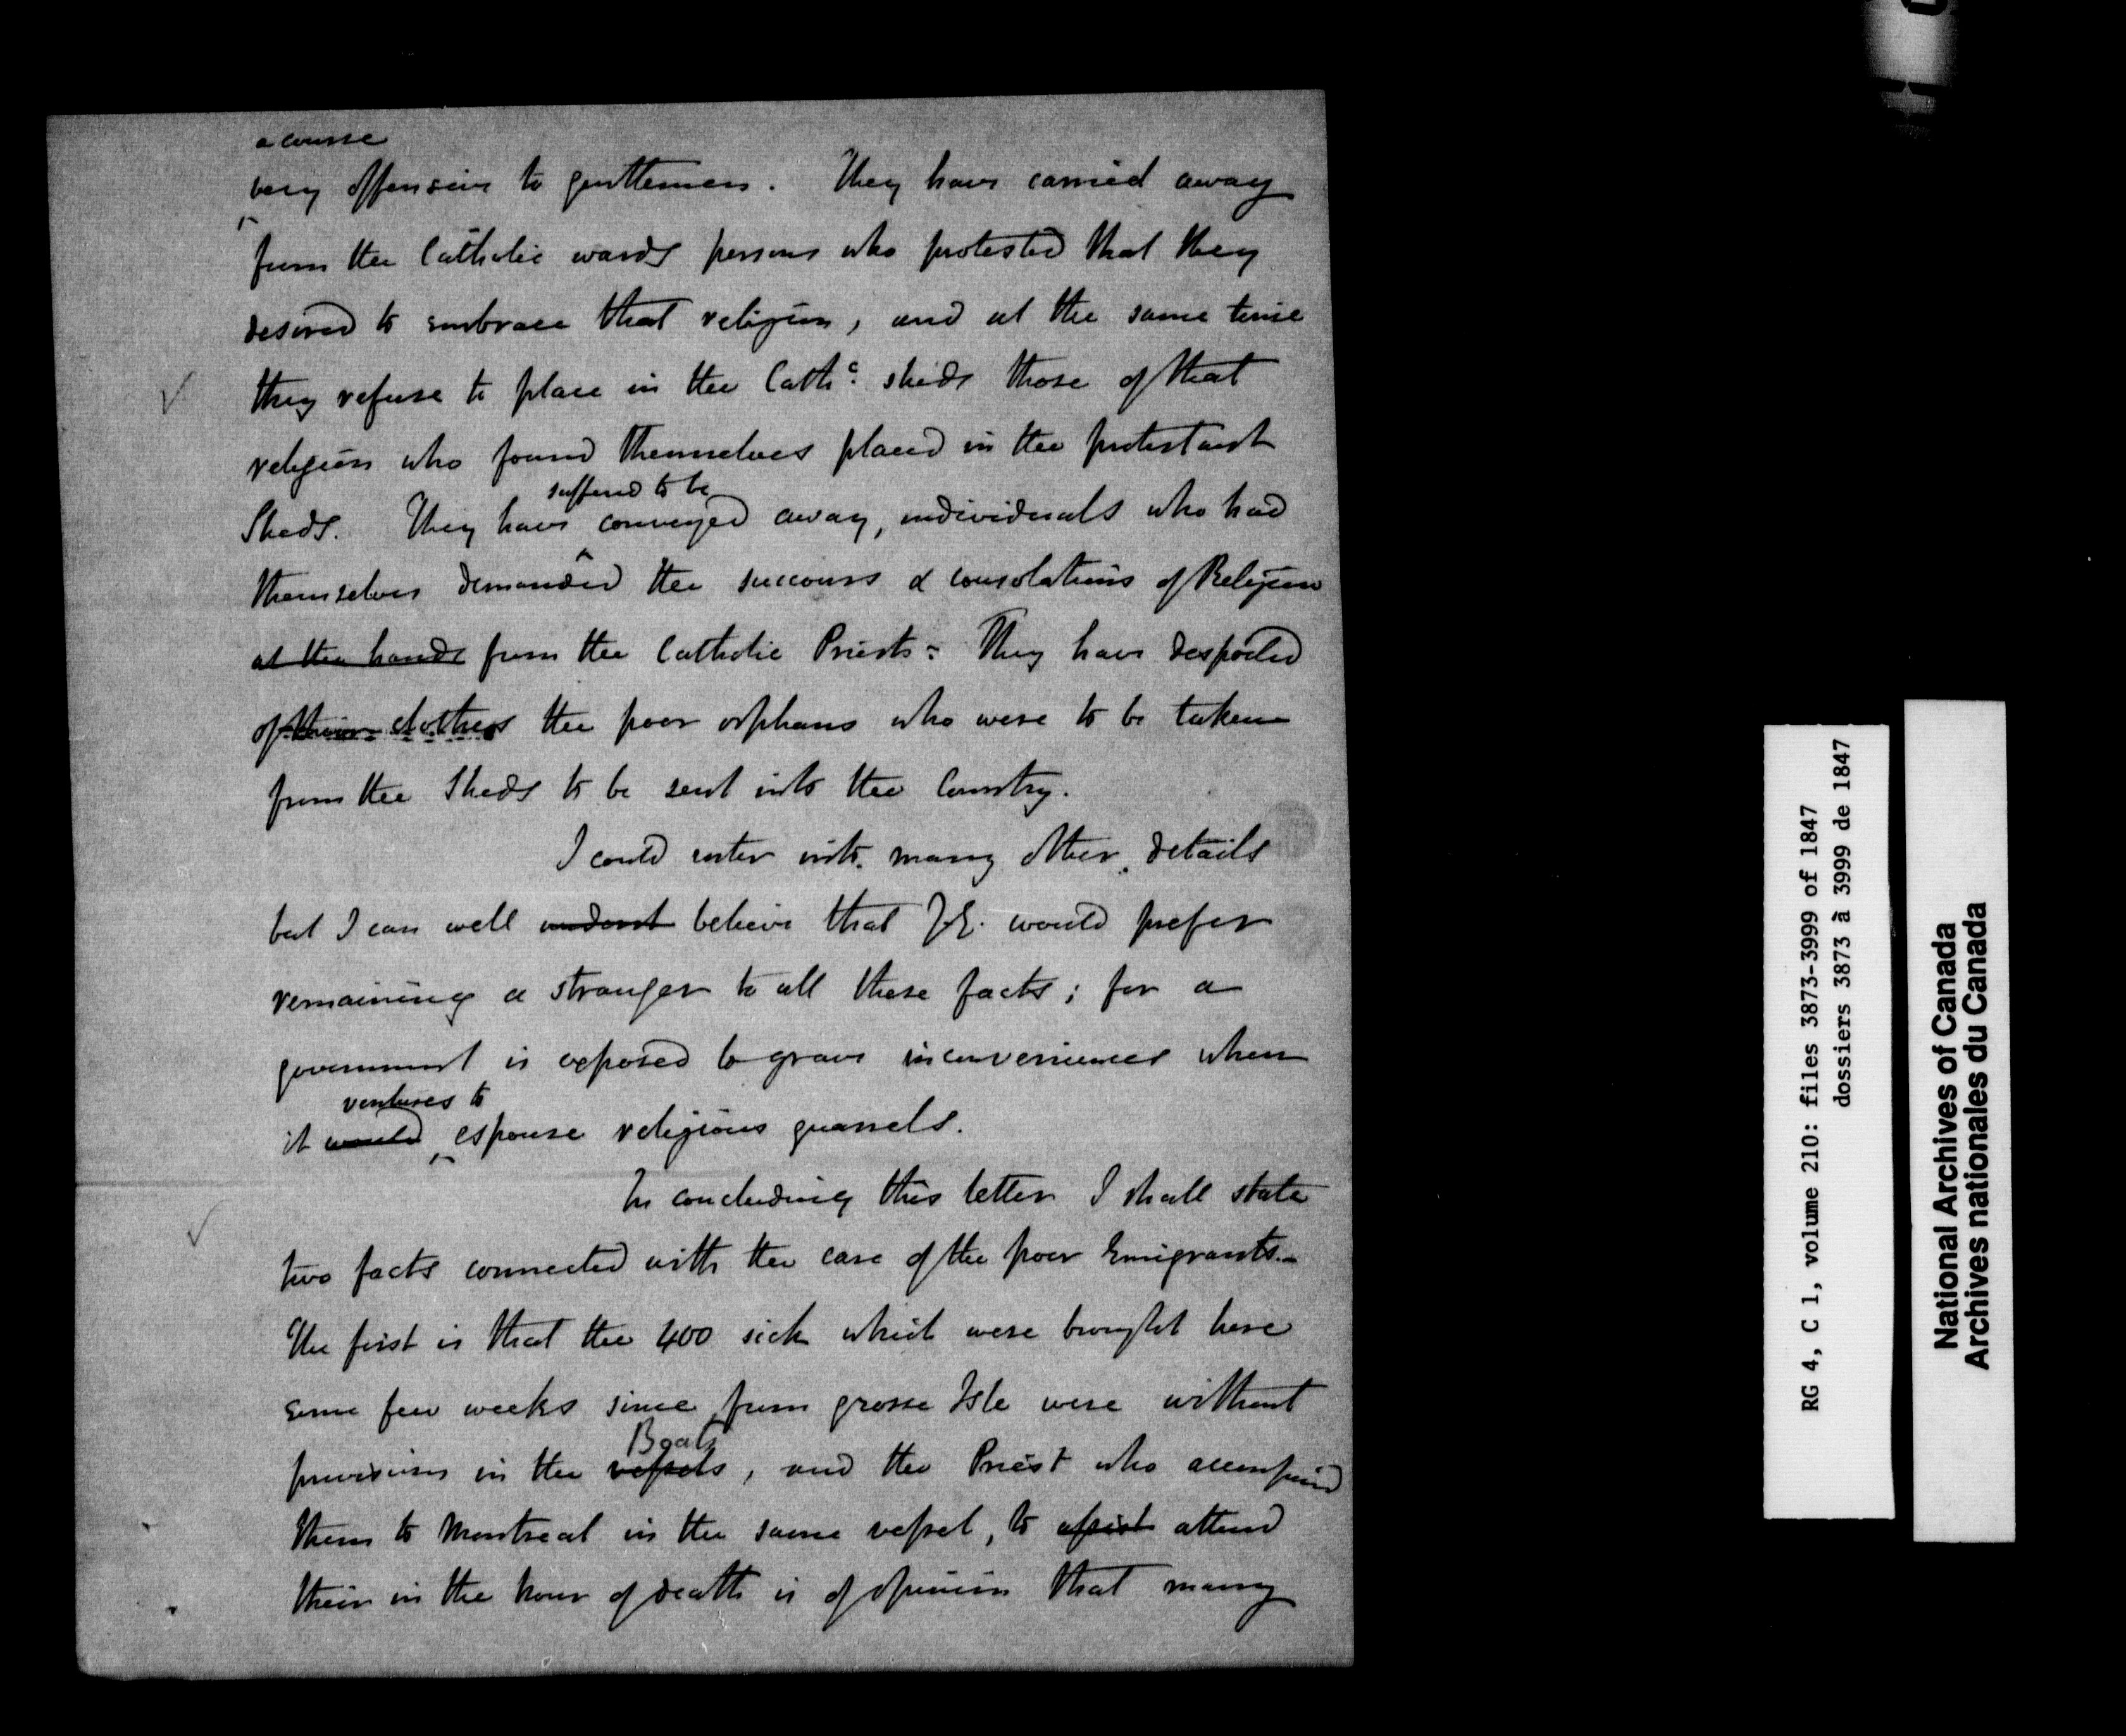 a course
very offensive to gentlemen. They have carried away
from the Catholic wards persons who protested that they
desired to embrace that religion, and at the same time
they refuse to place in the Cathc. sheds those of that
religion who found themselves placed in the protestant
suffered to be
Sheds. They have conveyed away, individuals who had
themselves demanded the succours & consolations of Religion
at the hands from the Catholic Priests: They have despoiled
of their clothes the poor orphans who were to be taken
from the Sheds to be sent into the Country.
I could enter into many other details
but I can well underst believe that Y.E. would prefer
remaining a stranger to all these facts; for a
government is exposed to grave inconveniences when
ventures to
it would espouse religious quarrels.
In concluding this letter I shall state
two facts connected with the care of the poor Emigrants.-
The first is that the 400 sick which were brought here
some few weeks since from grosse Isle were without
Boats
provisions in the vessels, and the Priest who accompnied
them to Montreal in the same vessel, to assist attend
their in the hour of death is of opinion that many
RG 4, C 1, volume 210: files 3873-3999 of 1847
dossiers 3873 à 3999 de 1847
National Archives of Canada
Archives nationales du Canada